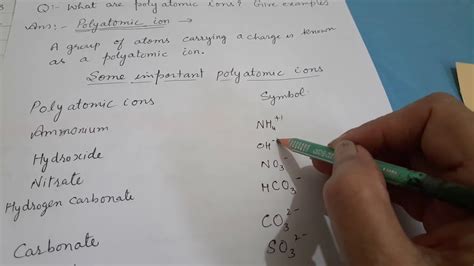 Q:- What are polyatomic ions? Give examples
An:- Polyatomic ion :→
A group of atoms carrying a charge is known
as a polyatomic ion.
Some important polyatomic ions
Polyatomic ions Symbol
Ammonium NH₄⁺¹
Hydroxide OH⁻
Nitrate NO₃⁻
Hydrogen carbonate HCO₃⁻
Carbonate CO₃²⁻
SO₃²⁻